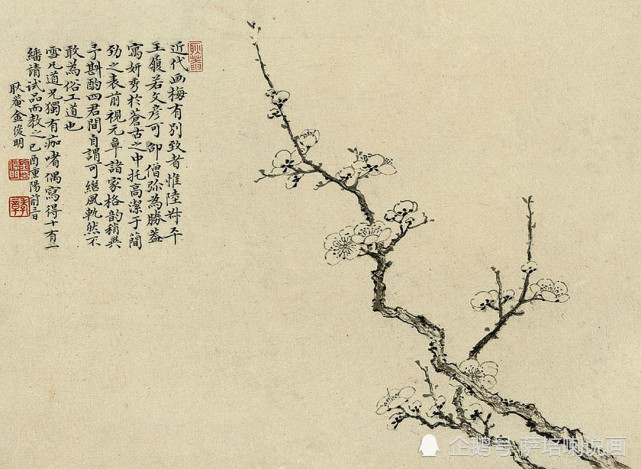 近代画梅有別致者惟陸叔平
王履若文彦可邵僧弥為勝葢
寓妍秀於蒼古之中托高潔于簡
劲之表前視元章諸家格韵稍異
予斟酌四君間自謂可継風軌然不
敢為俗工道也
雪凡道兄獨有痂嗜偶寫得十有一
繙請試品而教之己酉重陽前三日
耿菴金俊明
企鹅号 说画